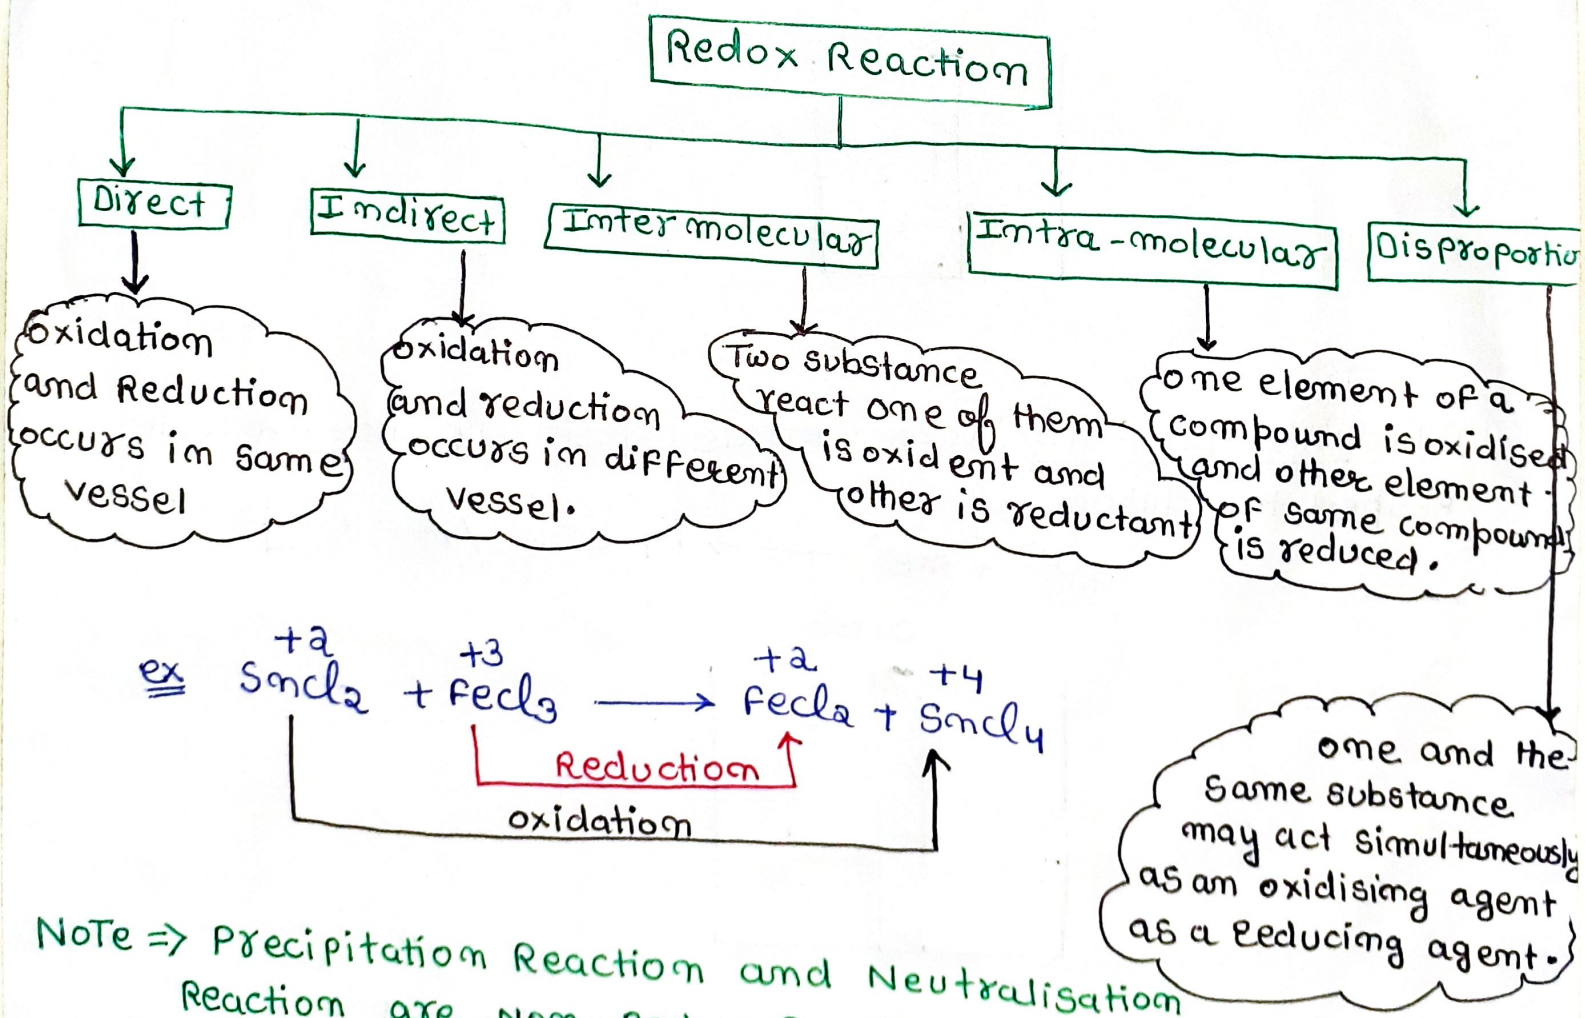 Redox Reaction
Direct
Indirect
Inter molecular
Intra-molecular
Disproportio
oxidation
and Reduction
occurs in same
vessel
oxidation
and reduction
occurs in different
vessel.
Two substance
react one of them
is oxident and
other is reductant
one element of a
compound is oxidised
and other element
of same compound
is reduced.
one and the
same substance
may act simultaneously
as an oxidising agent
as a reducing agent.
+2 +3 +2 +4
ex Sncl2 + Fecl3 ⟶ Fecl2 + Sncl4
Reduction
oxidation
NoTe ⇒ Precipitation Reaction and Neutralisation
Reaction are Non